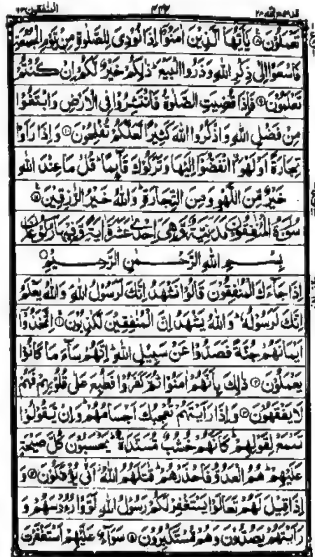 قد سمع الله ٢٨ ٤٤٢ المنٰفقون ٦٣
تَعْمَلُوْنَ ۞ يٰۤاَيُّهَا الَّذِيْنَ اٰمَنُوْۤا اِذَا نُوْدِيَ لِلصَّلٰوةِ مِنْ يَّوْمِ الْجُمُعَةِ
فَاسْعَوْا اِلٰى ذِكْرِ اللهِ وَذَرُوا الْبَيْعَ ؕ ذٰلِكُمْ خَيْرٌ لَّكُمْ اِنْ كُنْتُمْ
تَعْلَمُوْنَ ۞ فَاِذَا قُضِيَتِ الصَّلٰوةُ فَانْتَشِرُوْا فِي الْاَرْضِ وَابْتَغُوْا
مِنْ فَضْلِ اللهِ وَاذْكُرُوا اللهَ كَثِيْرًا لَّعَلَّكُمْ تُفْلِحُوْنَ ۞ وَاِذَا رَاَوْا
تِجَارَةً اَوْ لَهْوَا ۨ انْفَضُّوْۤا اِلَيْهَا وَتَرَكُوْكَ قَآئِمًا ؕ قُلْ مَا عِنْدَ اللهِ
خَيْرٌ مِّنَ اللَّهْوِ وَمِنَ التِّجَارَةِ ؕ وَاللهُ خَيْرُ الرّٰزِقِيْنَ ۞
سُوْرَةُ الْمُنٰفِقُوْنَ مَدَنِيَّةٌ وَّهِيَ اِحْدٰى عَشْرَةَ اٰيَةً وَّفِيْهَا رُكُوْعَانِ
بِسْمِ اللهِ الرَّحْمٰنِ الرَّحِيْمِ
اِذَا جَآءَكَ الْمُنٰفِقُوْنَ قَالُوْا نَشْهَدُ اِنَّكَ لَرَسُوْلُ اللهِ ۘ وَاللهُ يَعْلَمُ
اِنَّكَ لَرَسُوْلُهٗ ؕ وَاللهُ يَشْهَدُ اِنَّ الْمُنٰفِقِيْنَ لَكٰذِبُوْنَ ۞ اِتَّخَذُوْۤا
اَيْمَانَهُمْ جُنَّةً فَصَدُّوْا عَنْ سَبِيْلِ اللهِ ؕ اِنَّهُمْ سَآءَ مَا كَانُوْا
يَعْمَلُوْنَ ۞ ذٰلِكَ بِاَنَّهُمْ اٰمَنُوْا ثُمَّ كَفَرُوْا فَطُبِعَ عَلٰى قُلُوْبِهِمْ فَهُمْ
لَا يَفْقَهُوْنَ ۞ وَاِذَا رَاَيْتَهُمْ تُعْجِبُكَ اَجْسَامُهُمْ ؕ وَاِنْ يَّقُوْلُوْا
تَسْمَعْ لِقَوْلِهِمْ ؕ كَاَنَّهُمْ خُشُبٌ مُّسَنَّدَةٌ ؕ يَحْسَبُوْنَ كُلَّ صَيْحَةٍ
عَلَيْهِمْ ؕ هُمُ الْعَدُوُّ فَاحْذَرْهُمْ ؕ قٰتَلَهُمُ اللهُ ۫ اَنّٰى يُؤْفَكُوْنَ ۞ وَ
اِذَا قِيْلَ لَهُمْ تَعَالَوْا يَسْتَغْفِرْ لَكُمْ رَسُوْلُ اللهِ لَوَّوْا رُءُوْسَهُمْ وَ
رَاَيْتَهُمْ يَصُدُّوْنَ وَهُمْ مُّسْتَكْبِرُوْنَ ۞ سَوَآءٌ عَلَيْهِمْ اَسْتَغْفَرْتَ